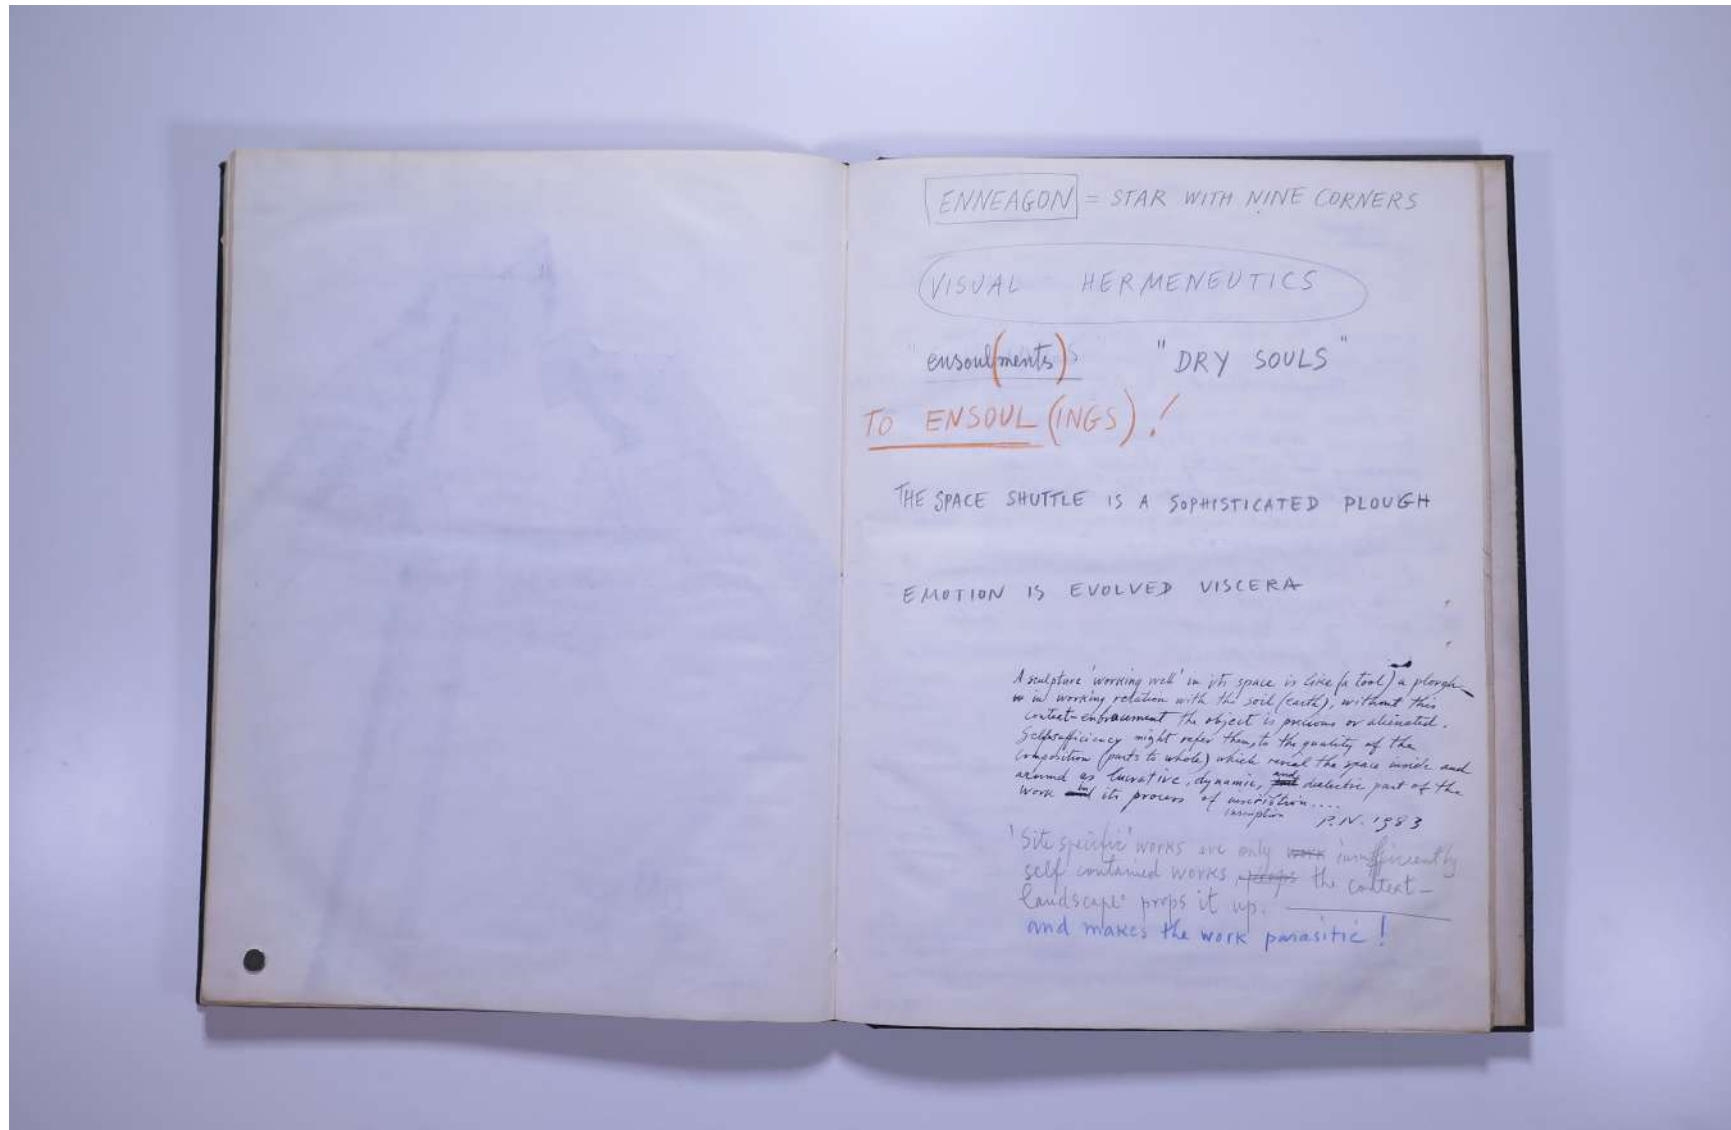 ENNEAGON = STAR WITH NINE CORNERS
VISUAL HERMENEUTICS
"ensoul(ments)s" "DRY SOULS"
TO ENSOUL (INGS) !
THE SPACE SHUTTLE IS A SOPHISTICATED PLOUGH
EMOTION IS EVOLVED VISCERA
A sculpture 'working well' in its space is like (a tool) a plough
in working relation with the soil (earth), without this
context-enbracement the object is precious or alienated.
Selfsufficiency might refer then, to the quality of the
composition (parts to whole) which reveal the space inside and
around as lucrative, dynamic, and dialectic part of the
work in its process of
inscription
P.N. 1983
'Site specific' works are only work insufficiently
self contained works, props the context-
landscape props it up.
and makes the work parasitic !